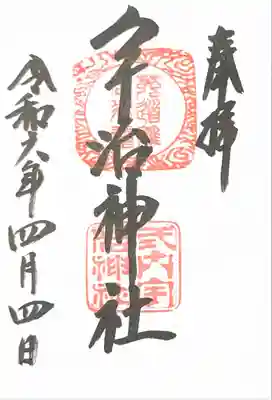 奉拝
宇治神社
式内宇治神社
令和六年四月四日